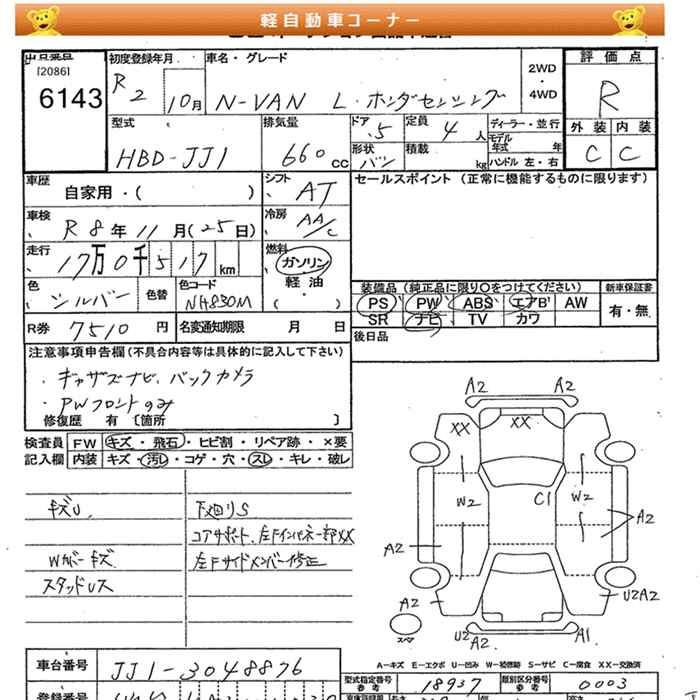 軽自動車コーナー
出品番号 初度登録年月 車名・グレード 2WD・4WD 評価点
[2086]
6143 R2 10月 N-VAN L・ホンダセンシング R
型式 排気量 ドア 定員 ディーラー・並行 外装 内装
HBD-JJ1 660cc 5 4人 モデル年式 年 C C
形状 バン 積載 kg ハンドル 左・右
車歴 シフト セールスポイント (正常に機能するものに限ります)
自家用・( ) AT
車検 冷房
R8年11月(25日) AA/C
走行 燃料
17万0千517km ガソリン
軽油
色 色替 色コード 装備品 (純正品に限り○をつけてください) 新車保証書
シルバー NH830M PS PW ABS エアB AW 有・無
SR ナビ TV カワ
R券 7510円 名変通知期限 月 日 後日品
注意事項申告欄(不具合内容等は具体的に記入して下さい)
・ギャザズナビ、バックカメラ
・PWフロントのみ
修復歴 有 〔箇所 〕
検査員 FW キズ・飛石・ヒビ割・リペア跡・×要
記入欄 内装 キズ・汚レ・コゲ・穴・スレ・キレ・破レ
キズU 下廻りS
コアサポート、左Fインパネ一部XX
Wガバーキズ 左Fサイドメンバー修正
スタッドレス
A2 A2
XX XX
W2 C1 W2
A2 A2
A2 U2A2
スペア U2 A2 A1
A-キズ E-エクボ U-凹み W-補修跡 S-サビ C-腐食 XX-交換済
車台番号 JJ1-3048876
型式指定番号 参考 18937 類別区分番号 参考 0003
登録番号